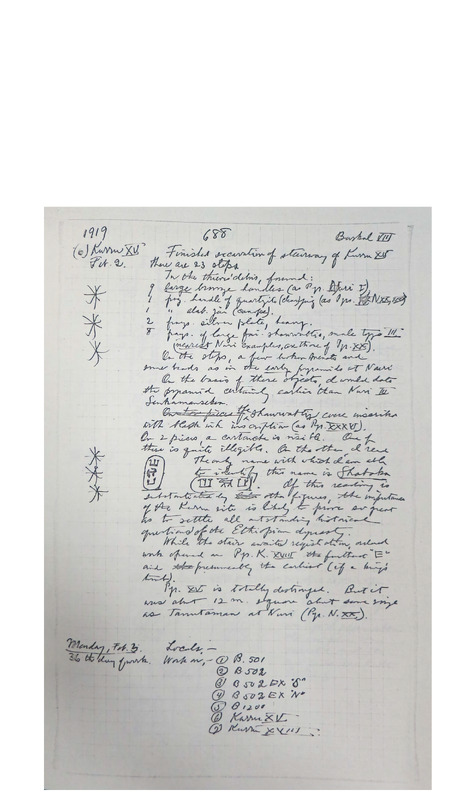 1919 688 Barkal VII
(c) Kurru XV Finished excavation of stairway of Kurru XV
Feb. 2. there are 23 steps
In the thieves' debris, found:
9 large bronze handles (as Pyr. Nuri I)
1 frg. handle of quartzite (as Pyrs.
1 " alab. jar
2 frags. silver plate, heavy.
8 frags. of large fai. shawabtis, male type III
(nearest Nuri examples, are those of Pyr. XX).
On the steps, a few broken amulets and
some beads as in the early pyramids at Nuri
On the basis of these objects, I would date
the pyramid certainly earlier than Nuri III
Senkamanseken.
the shawabtis were inscribed
with black ink inscription (as Pyr. XXXVI).
On 2 pieces a cartouche is visible. One of
these is quite illegible. On the other I read
The only name with which I am able
to identify this name is Shabaka
If this reading is
substantiated by other figures, the importance
of the Kurru site is likely to prove so great
as to settle all outstanding historical
questions of the Ethiopian dynasty.
While the stair awaited registration, I
work opened on Pyr. K. XVIII the farthest "E"
and presumably the earliest (if a king's
tomb).
Pyr. XV is totally destroyed. But it
was about 12 m. square about same size
as Tanutaman at Nuri (Pyr. N. XX).
Monday, Feb. 3. Locals;-
36th day of work. Work on;- (1) B. 501
(2) B 502
(3) B 502 EX "S"
(4) B 502 EX "N"
(5) B 1200
(6) Kurru XV
(7) Kurru XVIII